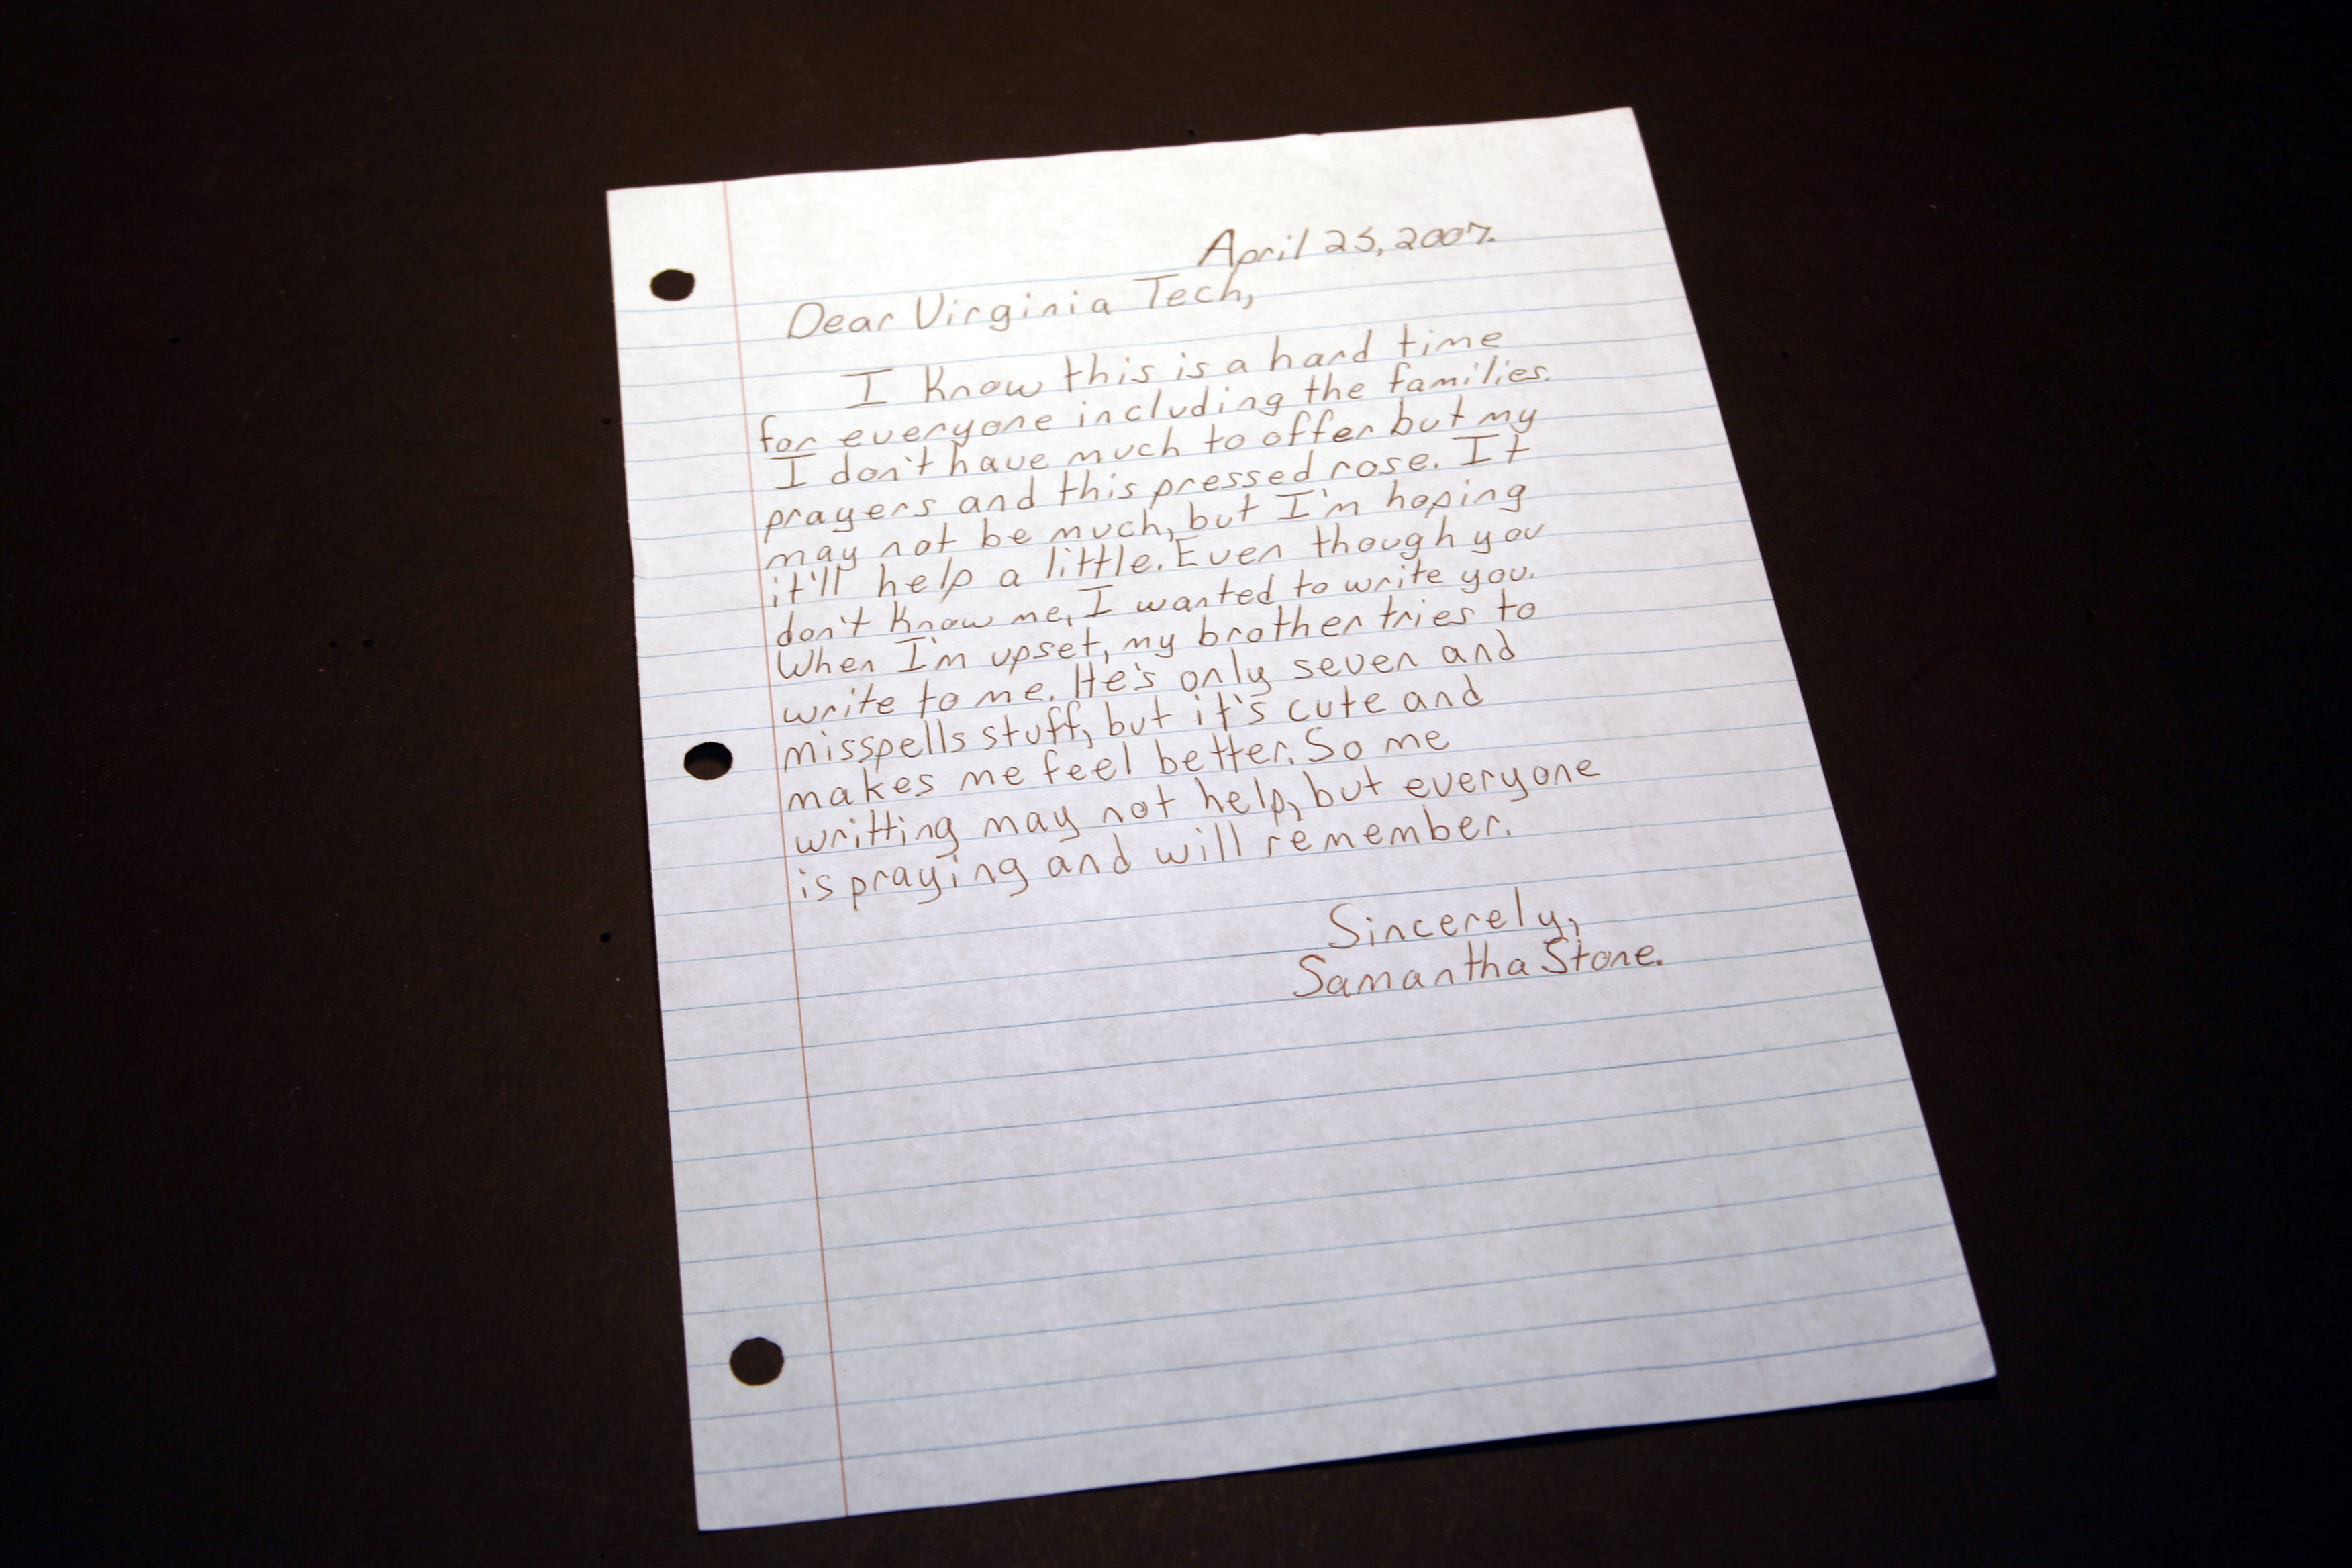 April 25, 2007.
Dear Virginia Tech,
I know this is a hard time
for everyone including the families.
I don't have much to offer but my
prayers and this pressed rose. It
may not be much, but I'm hoping
it'll help a little. Even though you
don't know me, I wanted to write you.
When I'm upset, my brother tries to
write to me. He's only seven and
misspells stuff, but it's cute and
makes me feel better. So me
writting may not help, but everyone
is praying and will remember.
Sincerely,
Samantha Stone.